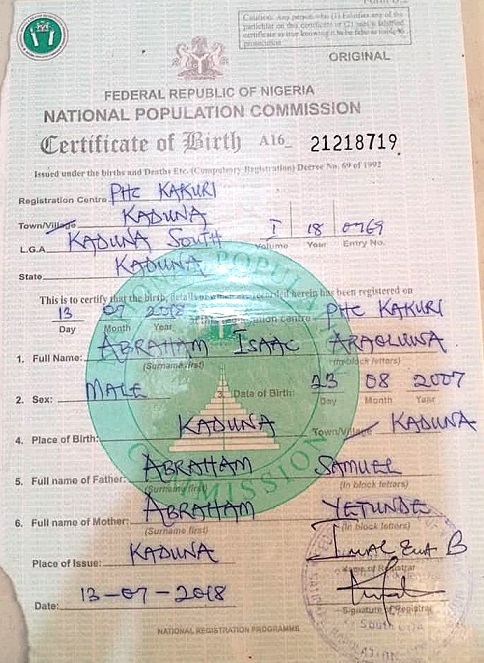 Form B.2
Caution: Any person who (1) Falsifies any of the
particular on this certificate or (2) uses a falsified
certificate as true knowing it to be false is liable to
prosecution
ORIGINAL
FEDERAL REPUBLIC OF NIGERIA
NATIONAL POPULATION COMMISSION
Certificate of Birth A16_ 21218719
Issued under the births and Deaths Etc. (Compulsory Registration) Decree No. 69 of 1992
Registration Centre PHC KAKURI
Town/Village KADUNA
L.G.A KADUNA SOUTH I 18 0769
Volume Year Entry No.
State KADUNA
This is to certify that the birth, details of which are recorded herein has been registered on
13 07 2018 at the registration centre PHC KAKURI
Day Month Year
1. Full Name: ABRAHAM ISAAC ARAOLUWA
(Surname first) (In block letters)
2. Sex: MALE 3. Date of Birth: 23 08 2007
Day Month Year
4. Place of Birth: KADUNA Town/Village KADUNA
5. Full name of Father: ABRAHAM SAMUEL
(Surname first) (In block letters)
6. Full name of Mother: ABRAHAM YETUNDE
(Surname first) (In block letters)
Place of Issue: KADUNA
Name of Registrar
Date: 13-07-2018
Signature of Registrar
NATIONAL REGISTRATION PROGRAMME